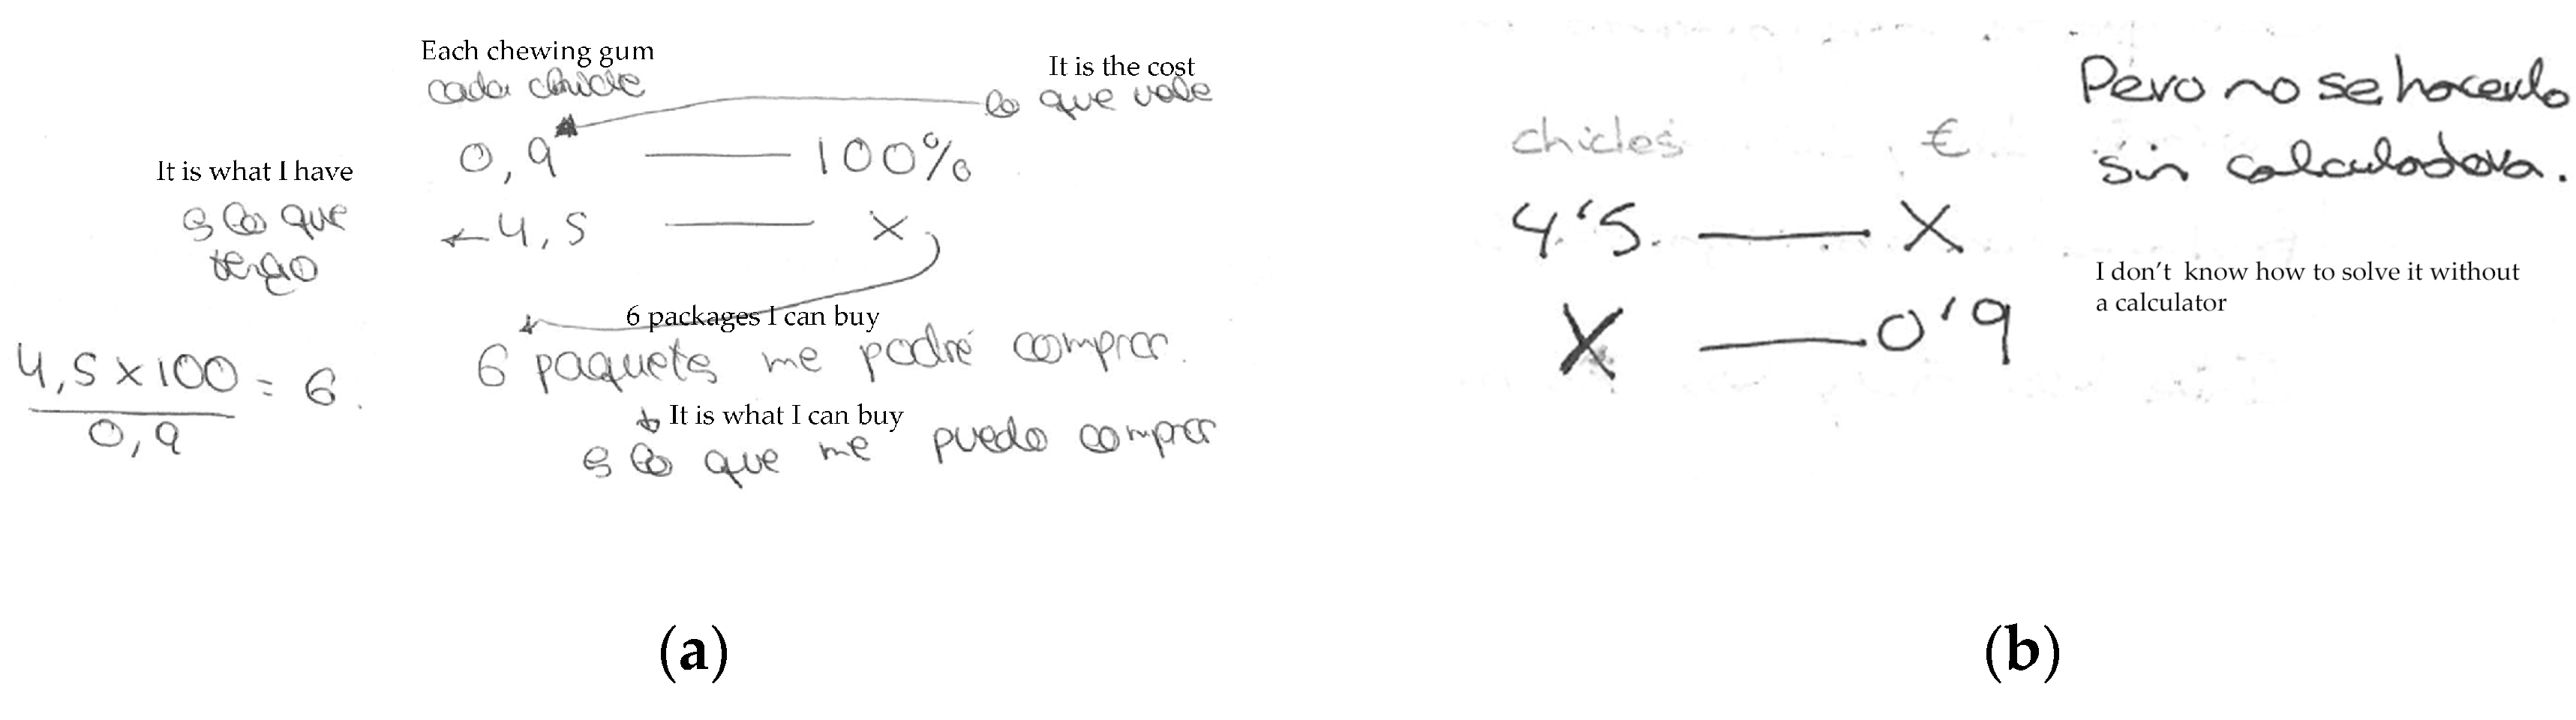 Each chewing gum
cada chicle
It is the cost
lo que vale
0,9 — 100%
It is what I have
es lo que
tengo
4,5 — x
6 packages I can buy
6 paquets me podré comprar.
4,5 x 100 = 6.
0,9
It is what I can buy
es lo que me puedo comprar
(a)
Pero no se hacerlo
sin calculadora.
chicles €
4'5. — X
I don't know how to solve it without
a calculator
X — 0'9
(b)